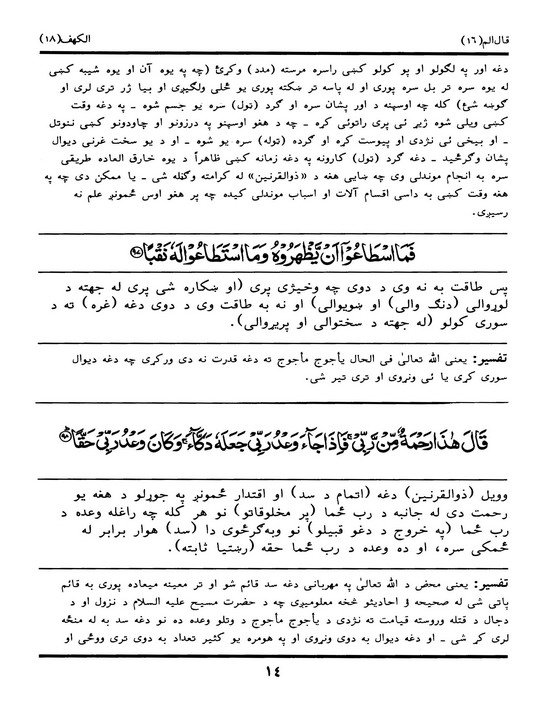 قال الم (١٦)
الکهف (١٨)
دغه اور په لګولو او پو کولو کښی راسره مرسته (مدد) وکړئ (چه په یوه آن او یوه شیبه کښی
له یوه سره تر بل سره پوری او له پاسه تر ښکته پوری یو ځلی ولګیږی او بیا ژر تری لری او
ګوښه شئ) کله چه اوسپنه د اور پشان سره او ګرد (ټول) سره یو جسم شوه ـ په دغه وقت
کښی ویلی شوه ژیړ ئی پری راتوئی کړه ـ چه د هغو اوسپنو په درزونو او چاودونو کښی ننوتل
ـ او بیخی ئی نژدی او پیوست کړه او ګرده (ټوله) سره یو شوه ـ او د یو سخت غرنی دیوال
پشان وګرځید ـ دغه ګرد (ټول) کارونه په دغه زمانه کښی ظاهراً د یوه خارق العاده طریقی
سره به انجام موندلی وی چه ښایی هغه د «ذوالقرنین» له کرامته وګڼله شی ـ یا ممکن دی چه په
هغه وقت کښی به داسی اقسام آلات او اسباب موندلی کیده چه پر هغو اوس ځمونږ علم نه
رسیږی.
فَمَا اسْطَاعُوْٓا اَنْ يَّظْهَرُوْهُ وَمَا اسْتَطَاعُوْا لَهٗ نَقْبًا ﴿٩٧﴾
پس طاقت به نه وی د دوی چه وخیژی پری (او ښکاره شی پری له جهته د
لوړوالی (دنګ والی) او ښویوالی) او نه به طاقت وی د دوی دغه (غره) ته د
سوری کولو (له جهته د سختوالی او پریړوالی).
تفسیر: یعنی الله تعالیٰ فی الحال یأجوج مأجوج ته دغه قدرت نه دی ورکړی چه دغه دیوال
سوری کړی یا ئی ونړوی او تری تیر شی.
قَالَ هٰذَا رَحْمَةٌ مِّنْ رَّبِّىْ ۚ فَاِذَا جَآءَ وَعْدُ رَبِّىْ جَعَلَهٗ دَكَّآءَ ۚ وَكَانَ وَعْدُ رَبِّىْ حَقًّا ﴿٩٨﴾
وویل (ذوالقرنین) دغه (اتمام د سد) او اقتدار ځمونږ په جوړلو د هغه یو
رحمت دی له جانبه د رب ځما (پر مخلوقاتو) نو هر کله چه راغله وعده د
رب ځما (په خروج د دغو قبیلو) نو وبه‌ګرځوی دا (سد) هوار برابر له
ځمکی سره، او ده وعده د رب ځما حقه (رښتیا ثابته).
تفسیر: یعنی محض د الله تعالیٰ په مهربانی دغه سد قائم شو او تر معینه میعاده پوری به قائم
پاتی شی له صحیحه ؤ احادیثو څخه معلومیږی چه د حضرت مسیح علیه السلام د نزول او د
دجال د قتله وروسته قیامت ته نژدی د یأجوج مأجوج د وتلو وعده ده نو دغه سد به له منځه
لری کړ شی ـ او دغه دیوال به دوی ونړوی او په هومره یو کثیر تعداد به دوی تری ووځی او
١٤